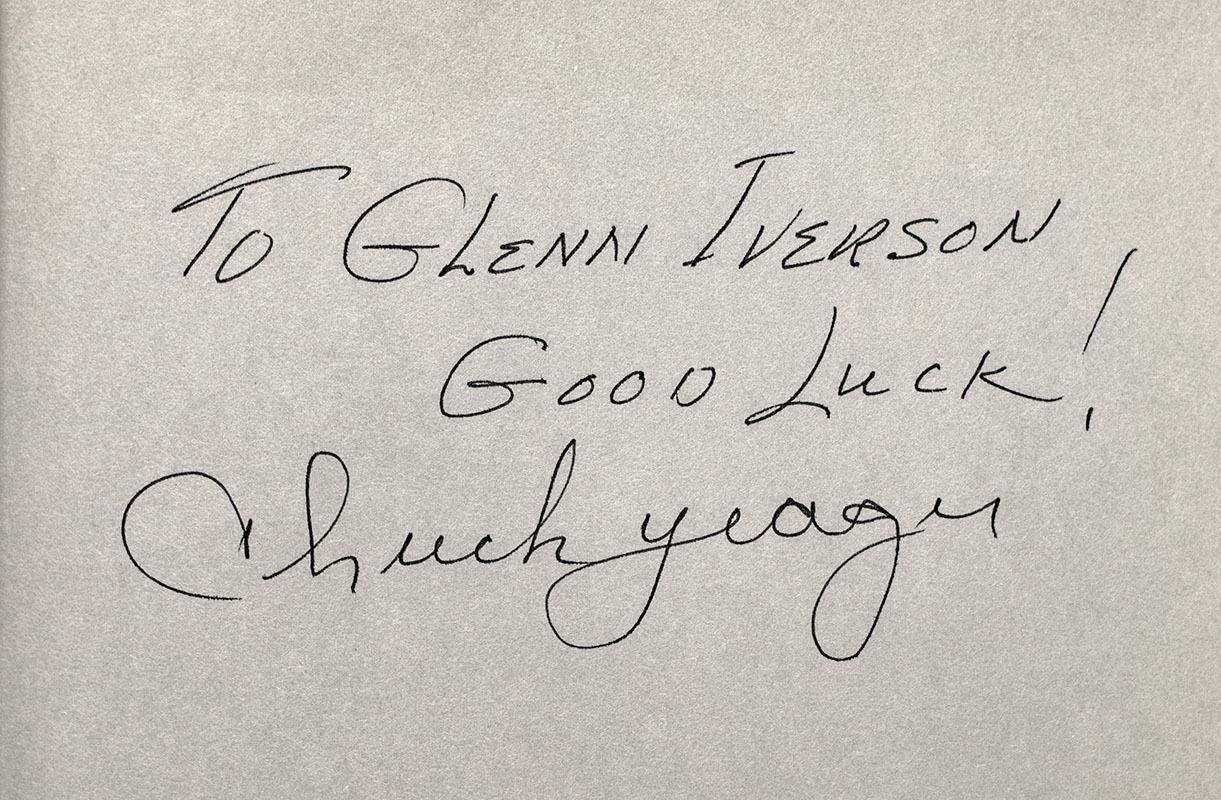 To GLENN IVERSON
GOOD LUCK!
Chuck Yeager